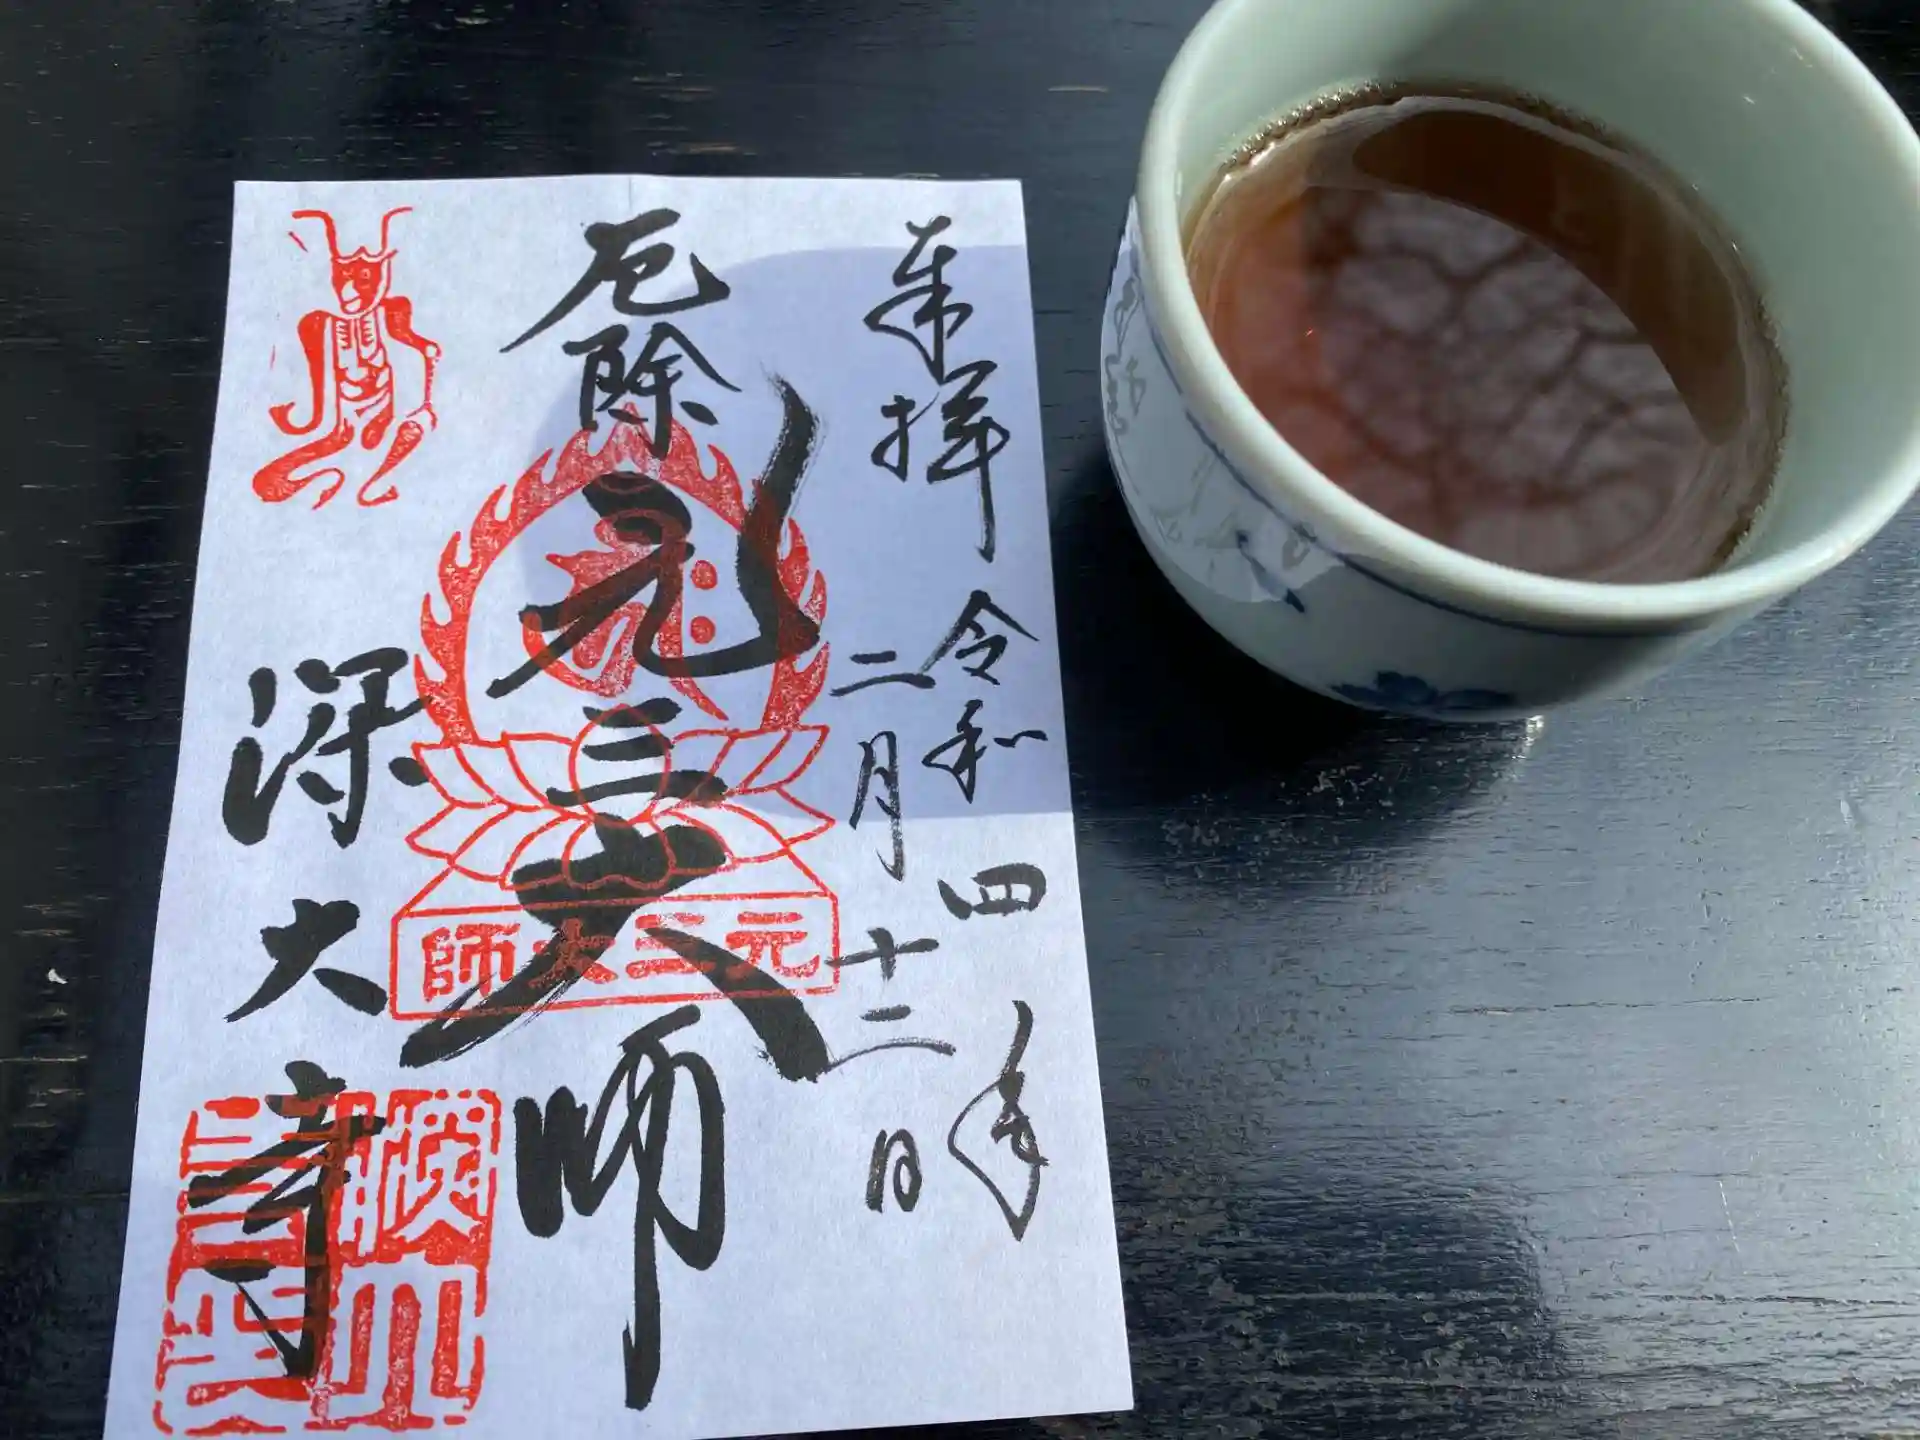 奉拝
令和四年
二月十二日
厄除
元三大師
元三大師
深大寺